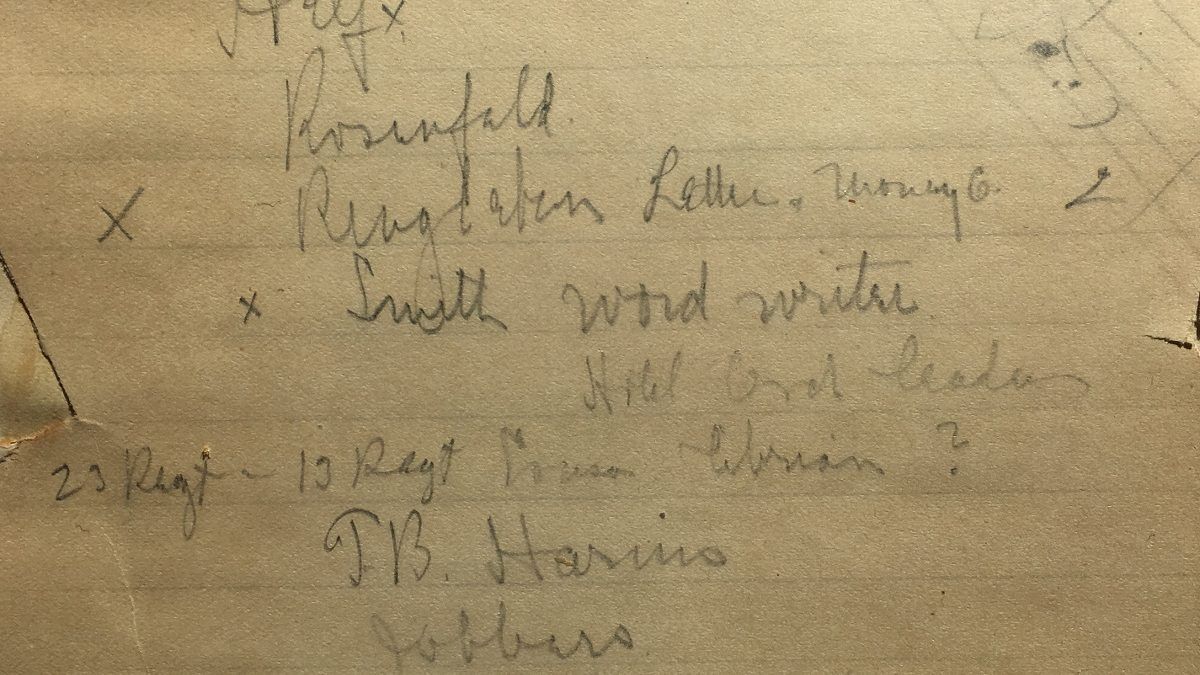 Rosenfeld.
X Ringleben Letter. Money 6. 2
x Smith word writer
Hotel Orch Leaders
23 Regt - 13 Regt Sousa ?
T.B. Harms
Jobbers